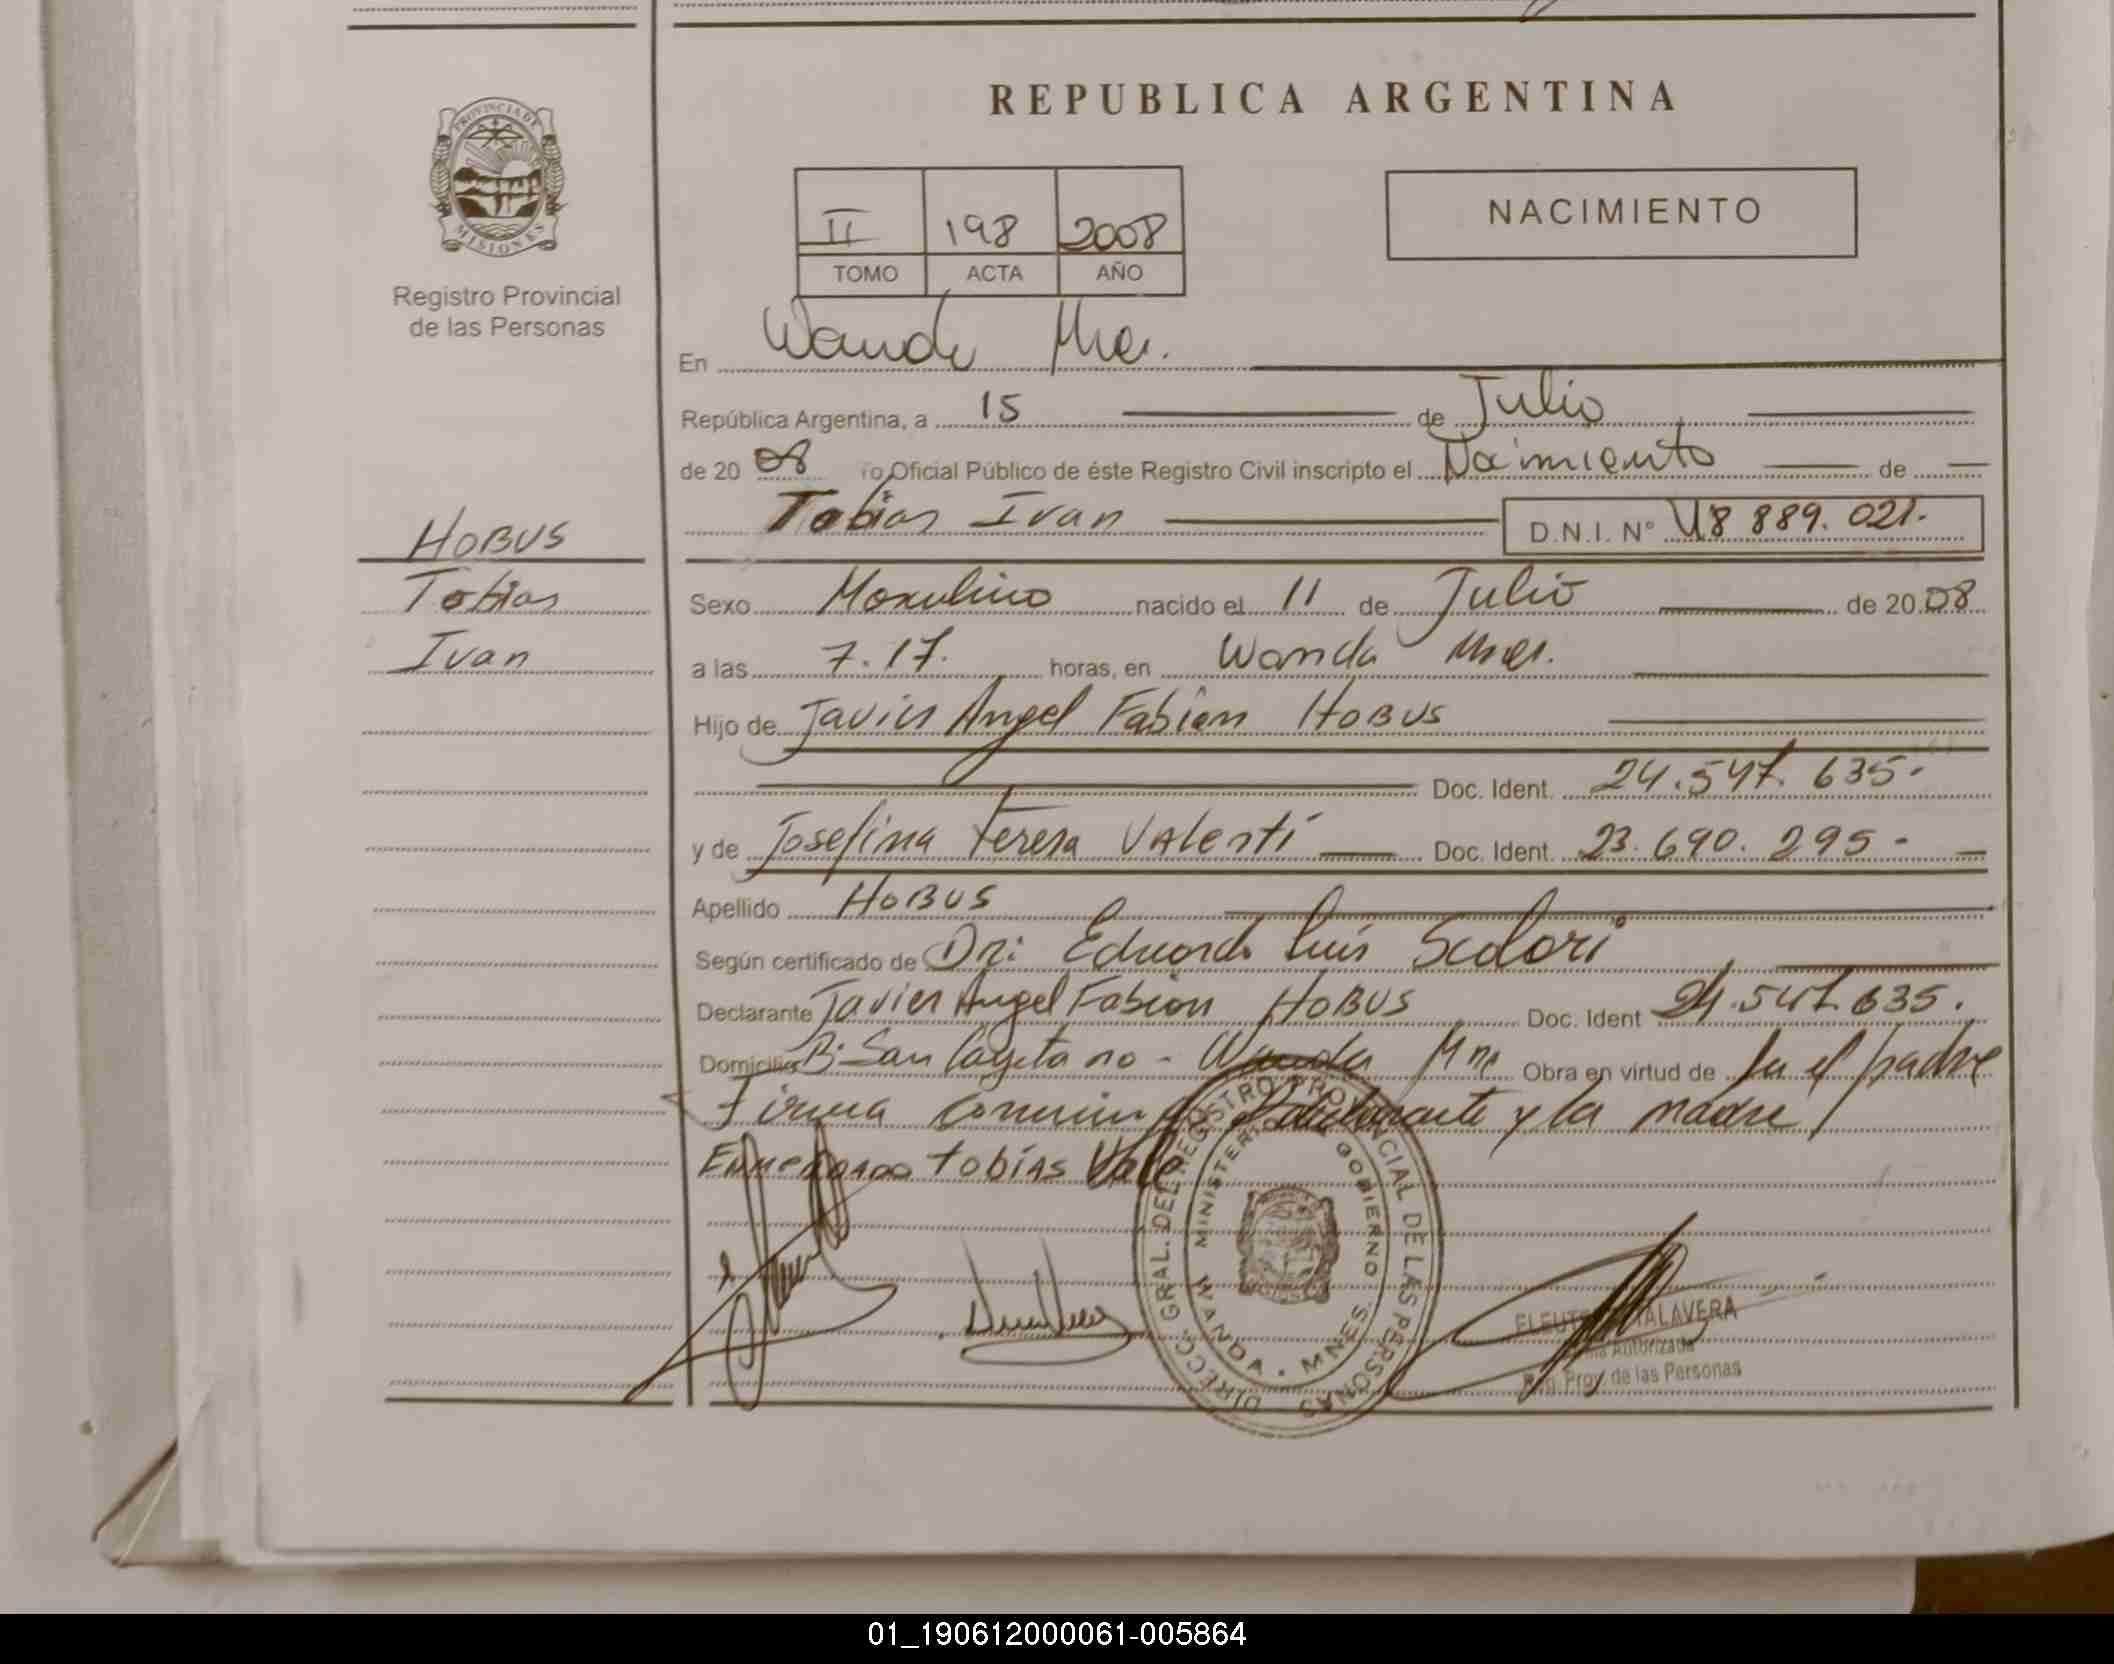 REPUBLICA ARGENTINA
PROVINCIA DE
MISIONES
Registro Provincial
de las Personas
II 198 2008
TOMO ACTA AÑO
NACIMIENTO
En Wanda Mnes.
República Argentina, a 15 de Julio
de 20 08 Yo Oficial Público de éste Registro Civil inscripto el Nacimiento de
Tobias Ivan D.N.I. Nº 48 889. 021.
HOBUS
Tobias
Ivan
Sexo Masculino nacido el 11 de Julio de 20 08
a las 7.17. horas, en Wanda Mnes.
Hijo de Javier Angel Fabian HOBUS
Doc. Ident. 24.547.635.
y de Josefina Teresa VALENTI Doc. Ident. 23.690.295-
Apellido HOBUS
Según certificado de Dr: Eduardo Luis Scolari
Declarante Javier Angel Fabian HOBUS Doc. Ident 24.547.635.
Domicilio B: San Cayetano - Wanda Mnes Obra en virtud de ser el padre
Firma declarante y la madre
Enmendado tobías Vale
DIRECC. GRAL. DEL REGISTRO PROVINCIAL DE LAS PERSONAS
MINISTERIO GOBIERNO
WANDA . MNES.
TALAVERA
Autorizada
Reg. Prov. de las Personas
01_190612000061-005864